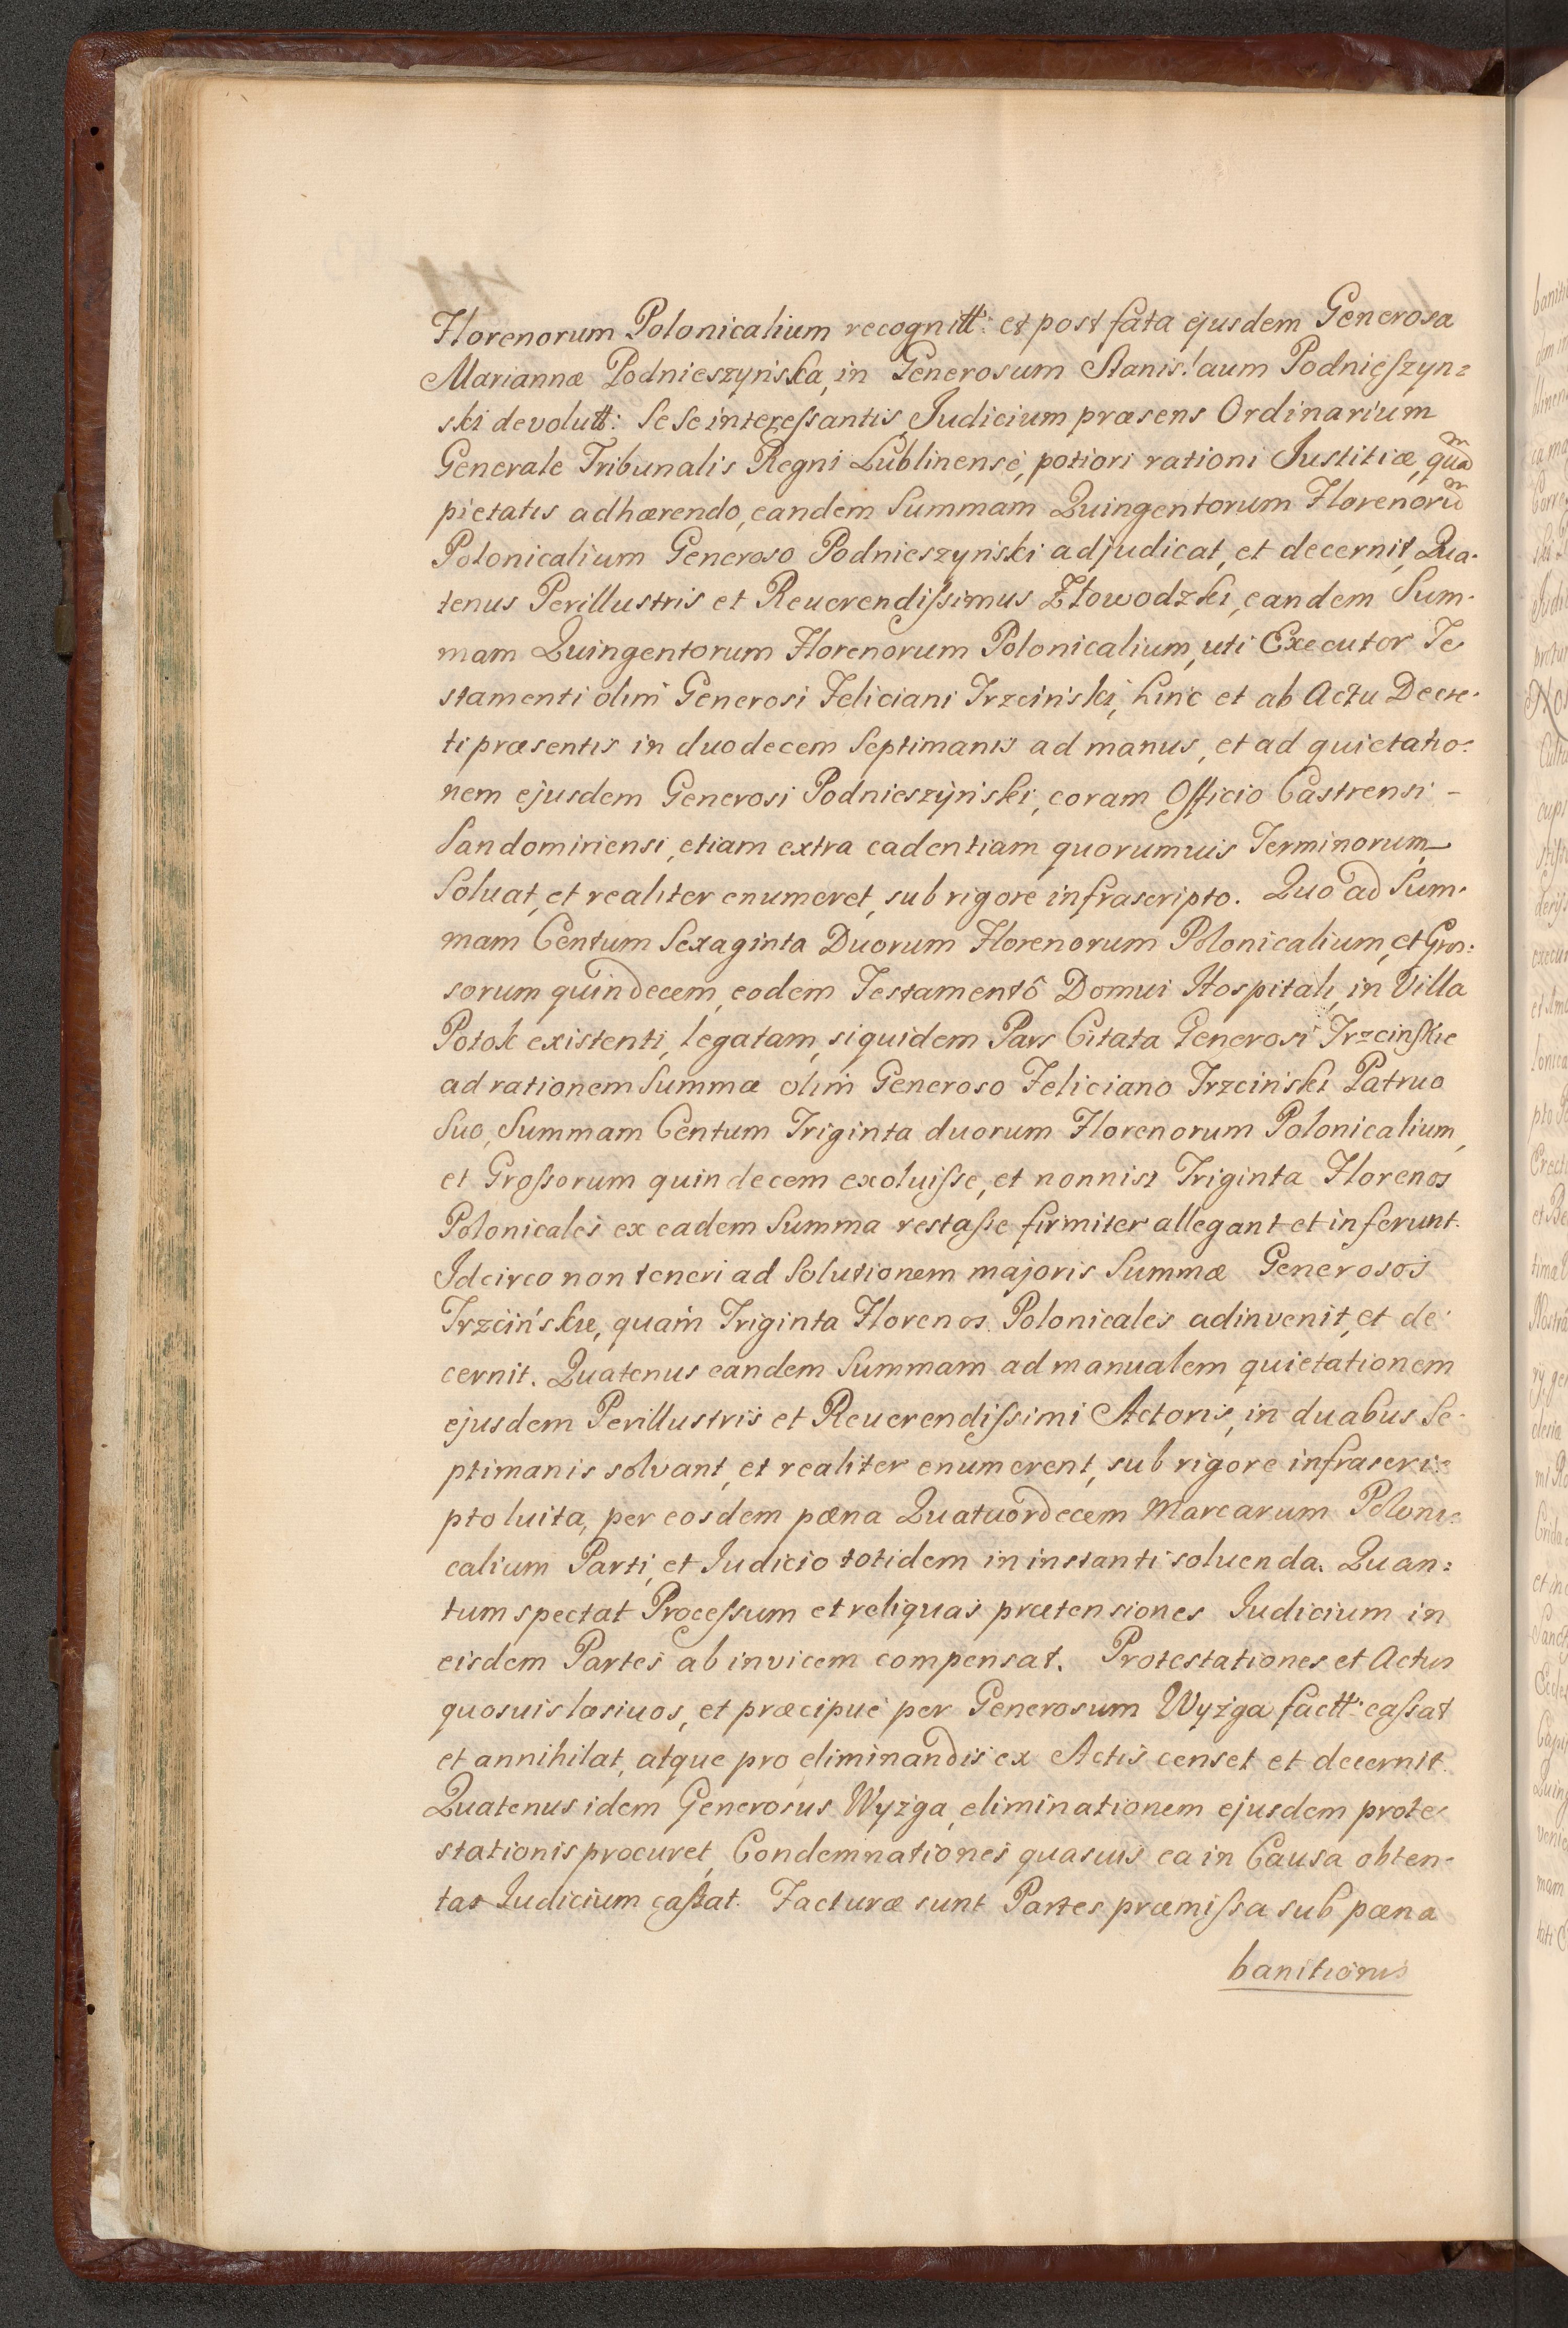 Florenorum Polonicalium recognitt: et post fata ejusdem Generosa
Mariannæ Podnieszyńska, in Generosum Stanislaum Podnieſzyn=
ski devolutt: se se intereſsantis, Judicium præsens Ordinarium
Generale Tribunalis Regni Lublinense, potiori rationi Justitiæ, quam
pietatis adhærendo, eandem Summam Quingentorum Florenorum
Polonicalium Generoso Podnieszyński adjudicat, et decernit, Qua-
tenus Perillustris et Reuerendiſsimus Złowodzki, eandem Sum-
mam Quingentorum Florenorum Polonicalium, uti Executor Te
stamenti olim Generosi Feliciani Trzciński, hinc et ab Actu Decre-
ti præsentis in duodecem Septimanis ad manus, et ad quietatio=
nem ejusdem Generosi Podnieszyński, coram Officio Castrensi -
Sandomiriensi, etiam extra cadentiam quorumuis Terminorum
Soluat, et realiter enumeret, sub rigore infrascripto. Quo ad Sum-
mam Centum Sexaginta Duorum Florenorum Polonicalium, et Gros:
sorum quindecem, eodem Testamentô Domui Hospitali, in Villa
Potok existenti, legatam, siquidem Pars Citata Generosi Trzcinſkie
ad rationem Summæ olim Generoso Feliciano Trzciński Patruo
Suo, Summam Centum Triginta duorum Florenorum Polonicalium,
et Groſsorum quindecem exoluiſse, et nonnisi Triginta Florenos
Polonicales ex eadem Summa restaſse firmiter allegant et inferunt.
Idcirco non teneri ad Solutionem majoris Summæ Generosos
Trzcińskie, quam Triginta Florenos Polonicales adinvenit, et de
cernit. Quatenus eandem Summam ad manualem quietationem
ejusdem Perillustris et Reuerendiſsimi Actoris, in duabus Se-
ptimanis solvant, et realiter enumerent, sub rigore infrascri=
pto luita, per eosdem pæna Quatuordecem Marcarum Poloni=
calium Parti, et Iudicio totidem in instanti soluenda. Quan=
tum spectat Proceſsum et reliquas prætensiones Iudicium in
eisdem Partes ab invicem compensat. Protestationes et Actus
quosuis læsiuos, et præcipue per Generosum Wyżga factt: caſsat
et annihilat, atque pro eliminandis ex Actis censet et decernit.
Quatenus idem Generosus Wyżga, eliminationem ejusdem prote=
stationis procuret, Condemnationes quasuis ea in Causa obten-
tas Iudicium caſsat. Facturæ sunt Partes præmiſsa sub pæna
banitionis